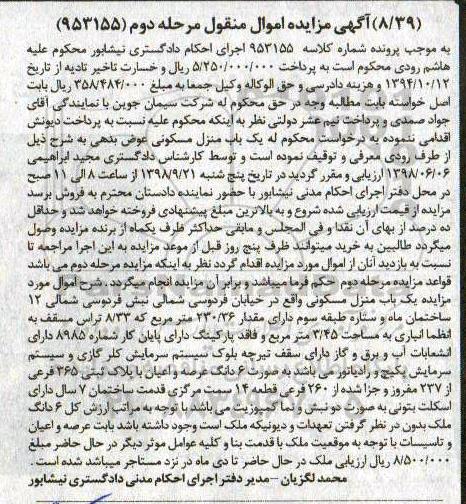 (۸/۳۹) آگهی مزایده اموال منقول مرحله دوم (۹۵۳۱۵۵)
به موجب پرونده شماره کلاسه ۹۵۳۱۵۵ اجرای احکام دادگستری نیشابور محکوم علیه
هاشم رودی محکوم است به پرداخت ۵/۲۵۰/۰۰۰/۰۰۰ ریال و خسارت تاخیر تادیه از تاریخ
۱۳۹۴/۱۰/۱۲ و هزینه دادرسی و حق الوکاله وکیل جمعا به مبلغ ۳۵۸/۴۸۴/۰۰۰ ریال بابت
اصل خواسته بابت مطالبه وجه در حق محکوم له شرکت سیمان جوین با نمایندگی آقای
جواد صمدی و پرداخت نیم عشر دولتی نظر به اینکه محکوم علیه نسبت به پرداخت دیونش
اقدامی ننموده به درخواست محکوم له یک باب منزل مسکونی عوض بدهی به شرح ذیل
از طرف رودی معرفی و توقیف نموده است و توسط کارشناس دادگستری مجید ابراهیمی
۱۳۹۸/۰۶/۰۶ ارزیابی و مقرر گردید در تاریخ پنج شنبه ۱۳۹۸/۹/۲۱ از ساعت ۸ الی ۱۱ صبح
در محل دفتر اجرای احکام مدنی نیشابور با حضور نماینده دادستان محترم به فروش برسد
مزایده از قیمت ارزیابی شده شروع و به بالاترین مبلغ پیشنهادی فروخته خواهد شد و حداقل
ده درصد از بهای آن نقدا و فی المجلس و مابقی حداکثر ظرف یکماه از برنده مزایده وصول
میگردد طالبین به خرید میتوانند ظرف پنج روز قبل از موعد مزایده به این اجرا مراجعه تا
نسبت به بازدید آنان از اموال مورد مزایده اقدام گردد نظر به اینکه مزایده مرحله دوم می باشد
قواعد مزایده مرحله دوم حکم فرما میباشد و برابر آن مزایده انجام میگردد. شرح اموال مورد
مزایده یک باب منزل مسکونی واقع در خیابان فردوسی شمالی نبش فردوسی شمالی ۱۲
ساختمان ماه و ستاره طبقه سوم دارای مقدار ۲۳۰/۳۶ متر مربع که ۸/۳۳ تراس مسقف به
انظما انباری به مساحت ۳/۴۵ متر مربع و فاقد پارکینگ دارای پایان کار شماره ۸۹۸۵ دارای
انشعابات آب و برق و گاز دارای سقف تیرچه بلوک سیستم سرمایش کلر گازی و سیستم
سرمایش پکیج و رادیاتور می باشد به صورت ۶ دانگ عرصه و اعیان با پلاک ثبتی ۳۶۵ فرعی
از ۲۳۷ مفروز و جزا شده از ۲۶۰ فرعی قطعه ۱۴ سمت مرکزی قدمت ساختمان ۷ سال دارای
اسکلت بتونی به صورت دو نبش و نما کمپوزیت می باشد. با توجه به مراتب ارزش کل ۶ دانگ
ملک بدون در نظر گرفتن تعهدات و دیونیکه ملک است وجود داشته باشد بابت عرصه و اعیان
و تاسیسات با توجه به موقعیت ملک با قدمت بنا و کلیه عوامل موثر دیگر در حال حاضر مبلغ
۸/۵۰۰/۰۰۰ ریال ارزیابی ملک در حال حاضر تا دی ماه در نزد مستاجر میباشد شده است.
محمد لگزیان - مدیر دفتر اجرای احکام مدنی دادگستری نیشابور